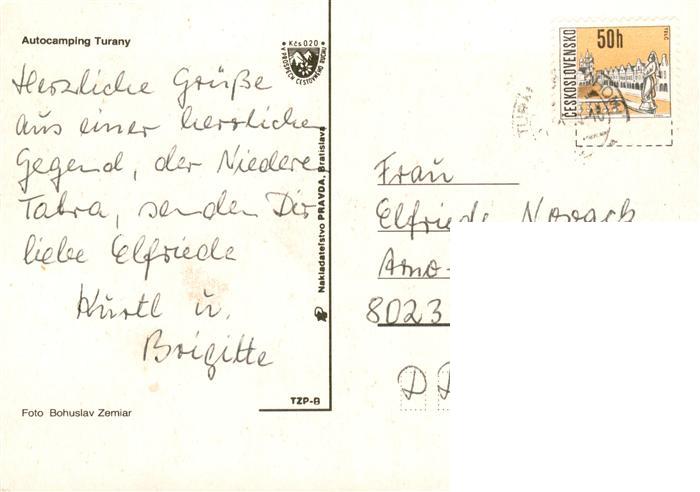 Autocamping Turany
Kčs 0,20
V PROSPECH CESTOVNÉHO RUCHU
Herzliche Grüße
aus einer herrlichen
Gegend, der Niederen
Tatra, senden Dir
liebe Elfriede
Kurtl u.
Brigitte
Foto Bohuslav Zemiar
Nakladateľstvo PRAVDA, Bratislava
TZP-B
ČESKOSLOVENSKO
50h
TELČ
TURA
Frau
Elfriede
Arno-
8023
D